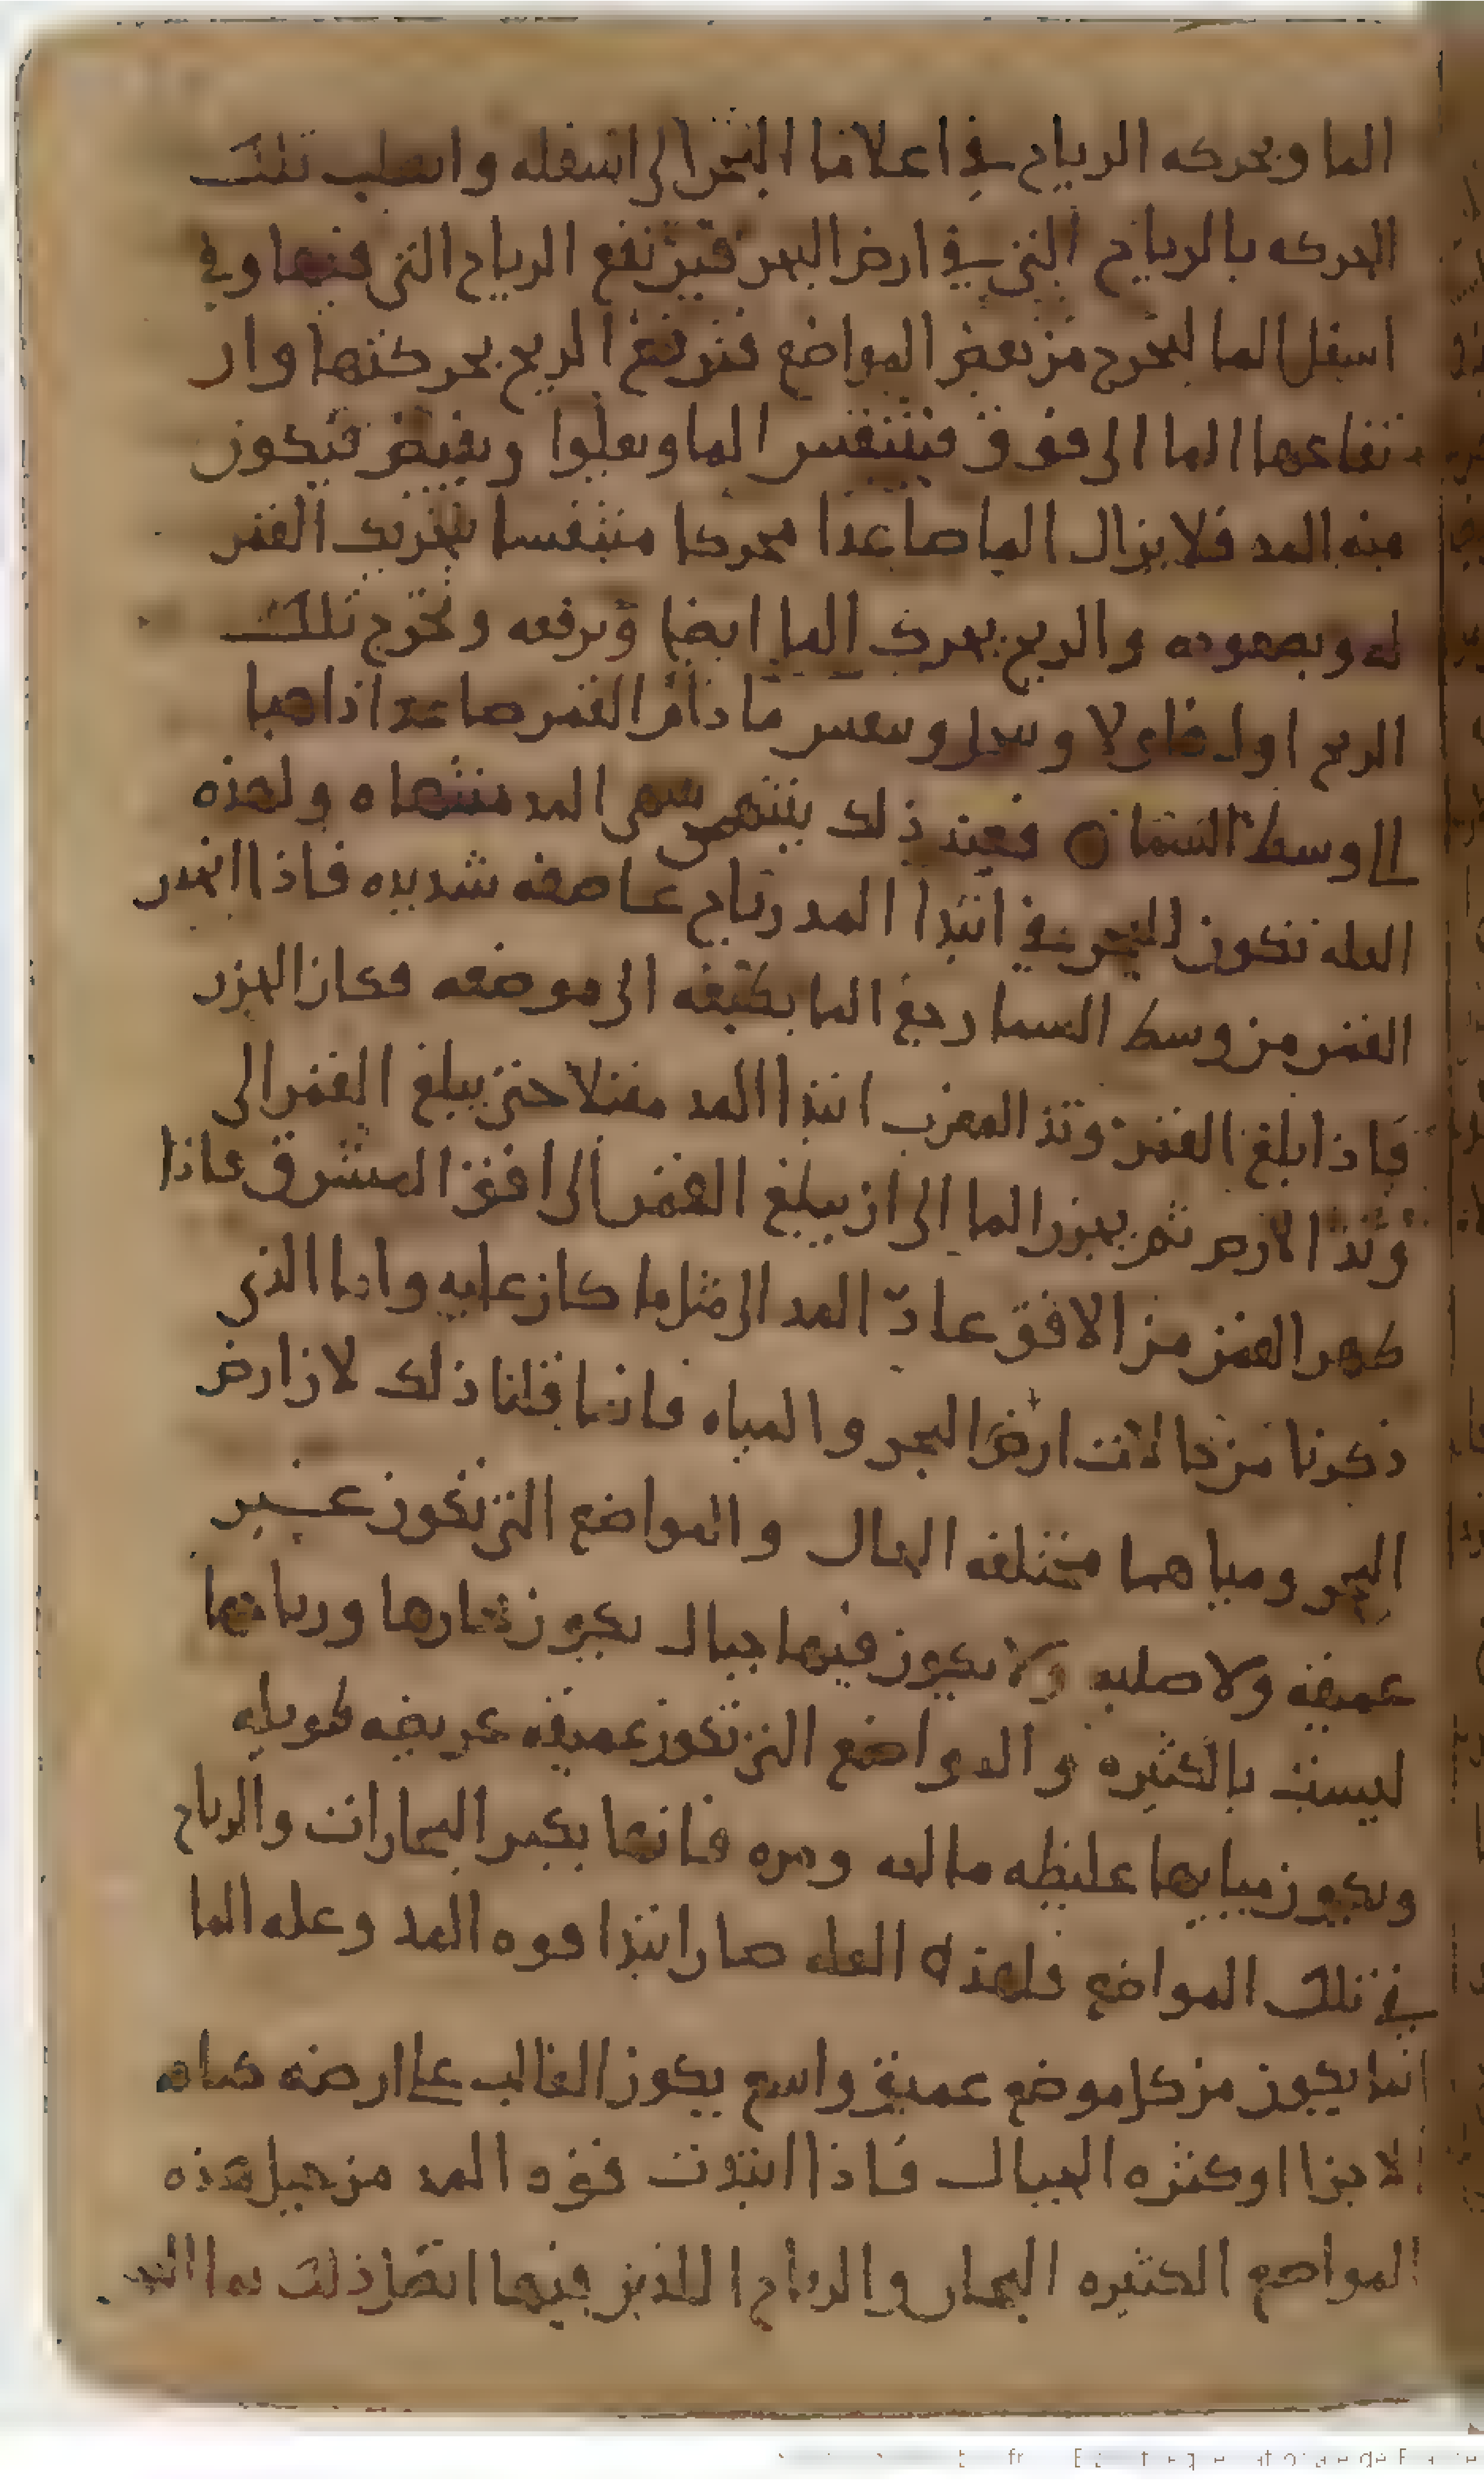 الما وبحركه الرياح في اعلا ما البحر الى اسفله واتصلت تلك
الحركه بالرياح التي في ارض البحر فترتفع الرياح التي فيها وفي
اسفل الما لتخرج من بعض المواضع فترفع الريح بحركتها وار
تفاعها الما الى فوق فيتنفس الما ويعلوا ويفيض فيكون
منه المد فلا يزال الما صاعدا محركا متنفسا بتحريك القمر
له وبصعوده والريح يحرك الما ايضا ويرفعه وتخرج تلك
الريح اولا فاولا ما دام القمر صاعدا ذاهبا
الى وسط السما ○ فعند ذلك ينتهي المد منتهاه ولهذه
العله تكون للبحر في ابتدا المد رياح عاصفه شديده فاذا انحدر
القمر من وسط السما رجع الما بطبعه الى موضعه فكان الجزر
فاذا بلغ القمر وتد المغرب ابتدا المد مقبلا حتى يبلغ القمر الى
وتد الارض ثم يجزر الما الى ان يبلغ القمر الى افق المشرق فاذا
طهر القمر من الافق عاد المد الى مثل ما كان عليه واما الذي
ذكرنا من حالات ارض البحر والمياه فانما قلنا ذلك لان ارض
البحر ومياهها مختلفه الحال والمواضع التي تكون غير
عميقه ولا صلبه ولا يكون فيها جبال يكون بخارها ورياحها
ليست بالكثيره والمواضع التي تكون عميقه عريضه طويله
ويكون مياهها غليظه مالحه فانها يكثر البخارات والرياح
في تلك المواضع فلهذه العله صار ابتدا قوه المد وعله الما
انما يكون من كل موضع عميق واسع يكون الغالب على ارضه صلابه
الاجزا او كثره الجبال فاذا ابتدت قوه المد من قبل هذه
المواضع الكثيره البخار والرياح اللذين فيها اتصل ذلك